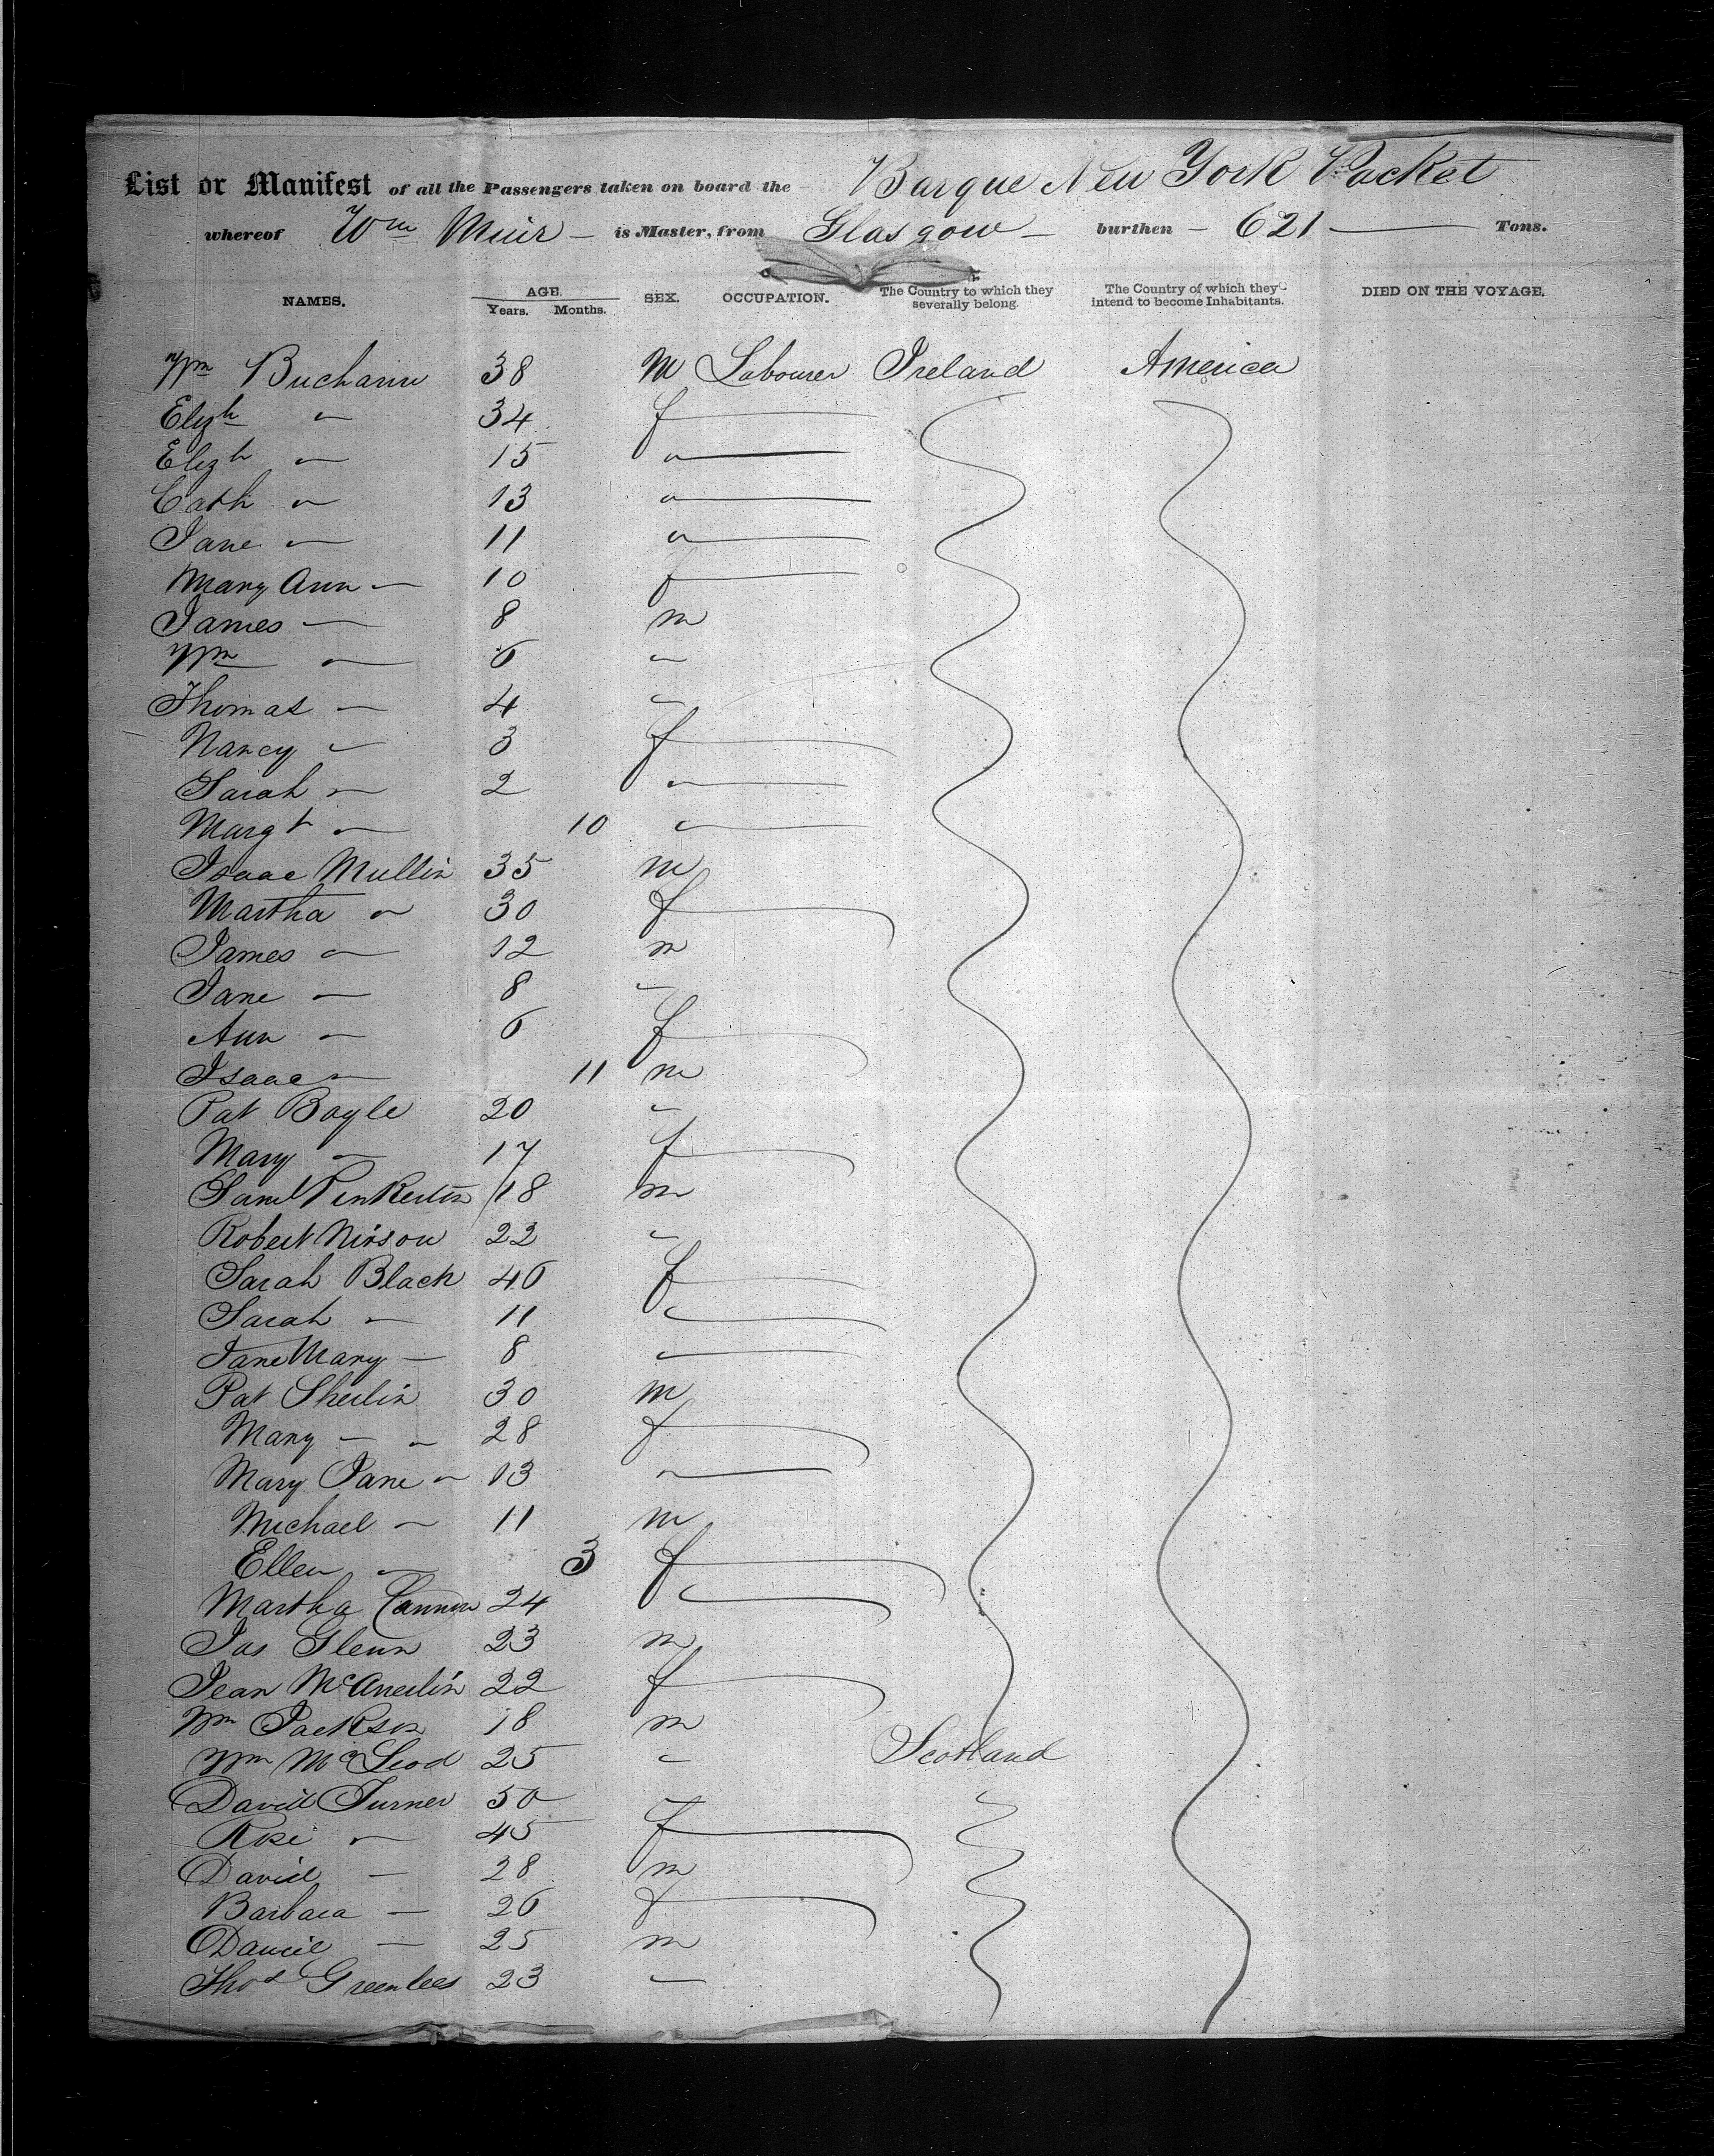 List or Manifest of all the Passengers taken on board the Barque New York Packet
whereof Wm Muir — is Master, from Glasgow — burthen — 621 — Tons.
NAMES. AGE. SEX. OCCUPATION. The Country to which they severally belong. The Country of which they intend to become Inhabitants. DIED ON THE VOYAGE.
Years. Months.
Wm Buchann 38 M Labourer Ireland America
Elizh " 34 f
Elizh " 15 "
Cath " 13 "
Jane " 11 "
Mary Ann — 10 f
James — 8 m
Wm " 6 "
Thomas — 4 "
Nancy " 3 f
Sarah " 2 "
Margt " 10 "
Isaac Mullin 35 m
Martha " 30 f
James " 12 m
Jane — 8 "
Ann — 6 f
Isaac — 11 m
Pat Boyle 20 "
Mary — 17 f
Saml Pinkerton 18 m
Robert 22 "
Sarah Black 46 f
Sarah — 11 "
Jane Mary — 8 "
Pat Sheilin 30 m
Mary — " 28 f
Mary Jane " 13 "
Michael — 11 m
Ellen — 3 f
Martha Cannon 24 "
Jas Glenn 23 m
Jean 22 f
Wm Jackson 18 m
Wm McLeod 25 " Scotland
David Turner 50 "
Rose " 45 f
David — 28 m
Barbara — 26 f
Daniel — 25 m
Thos Greenlees 23 "